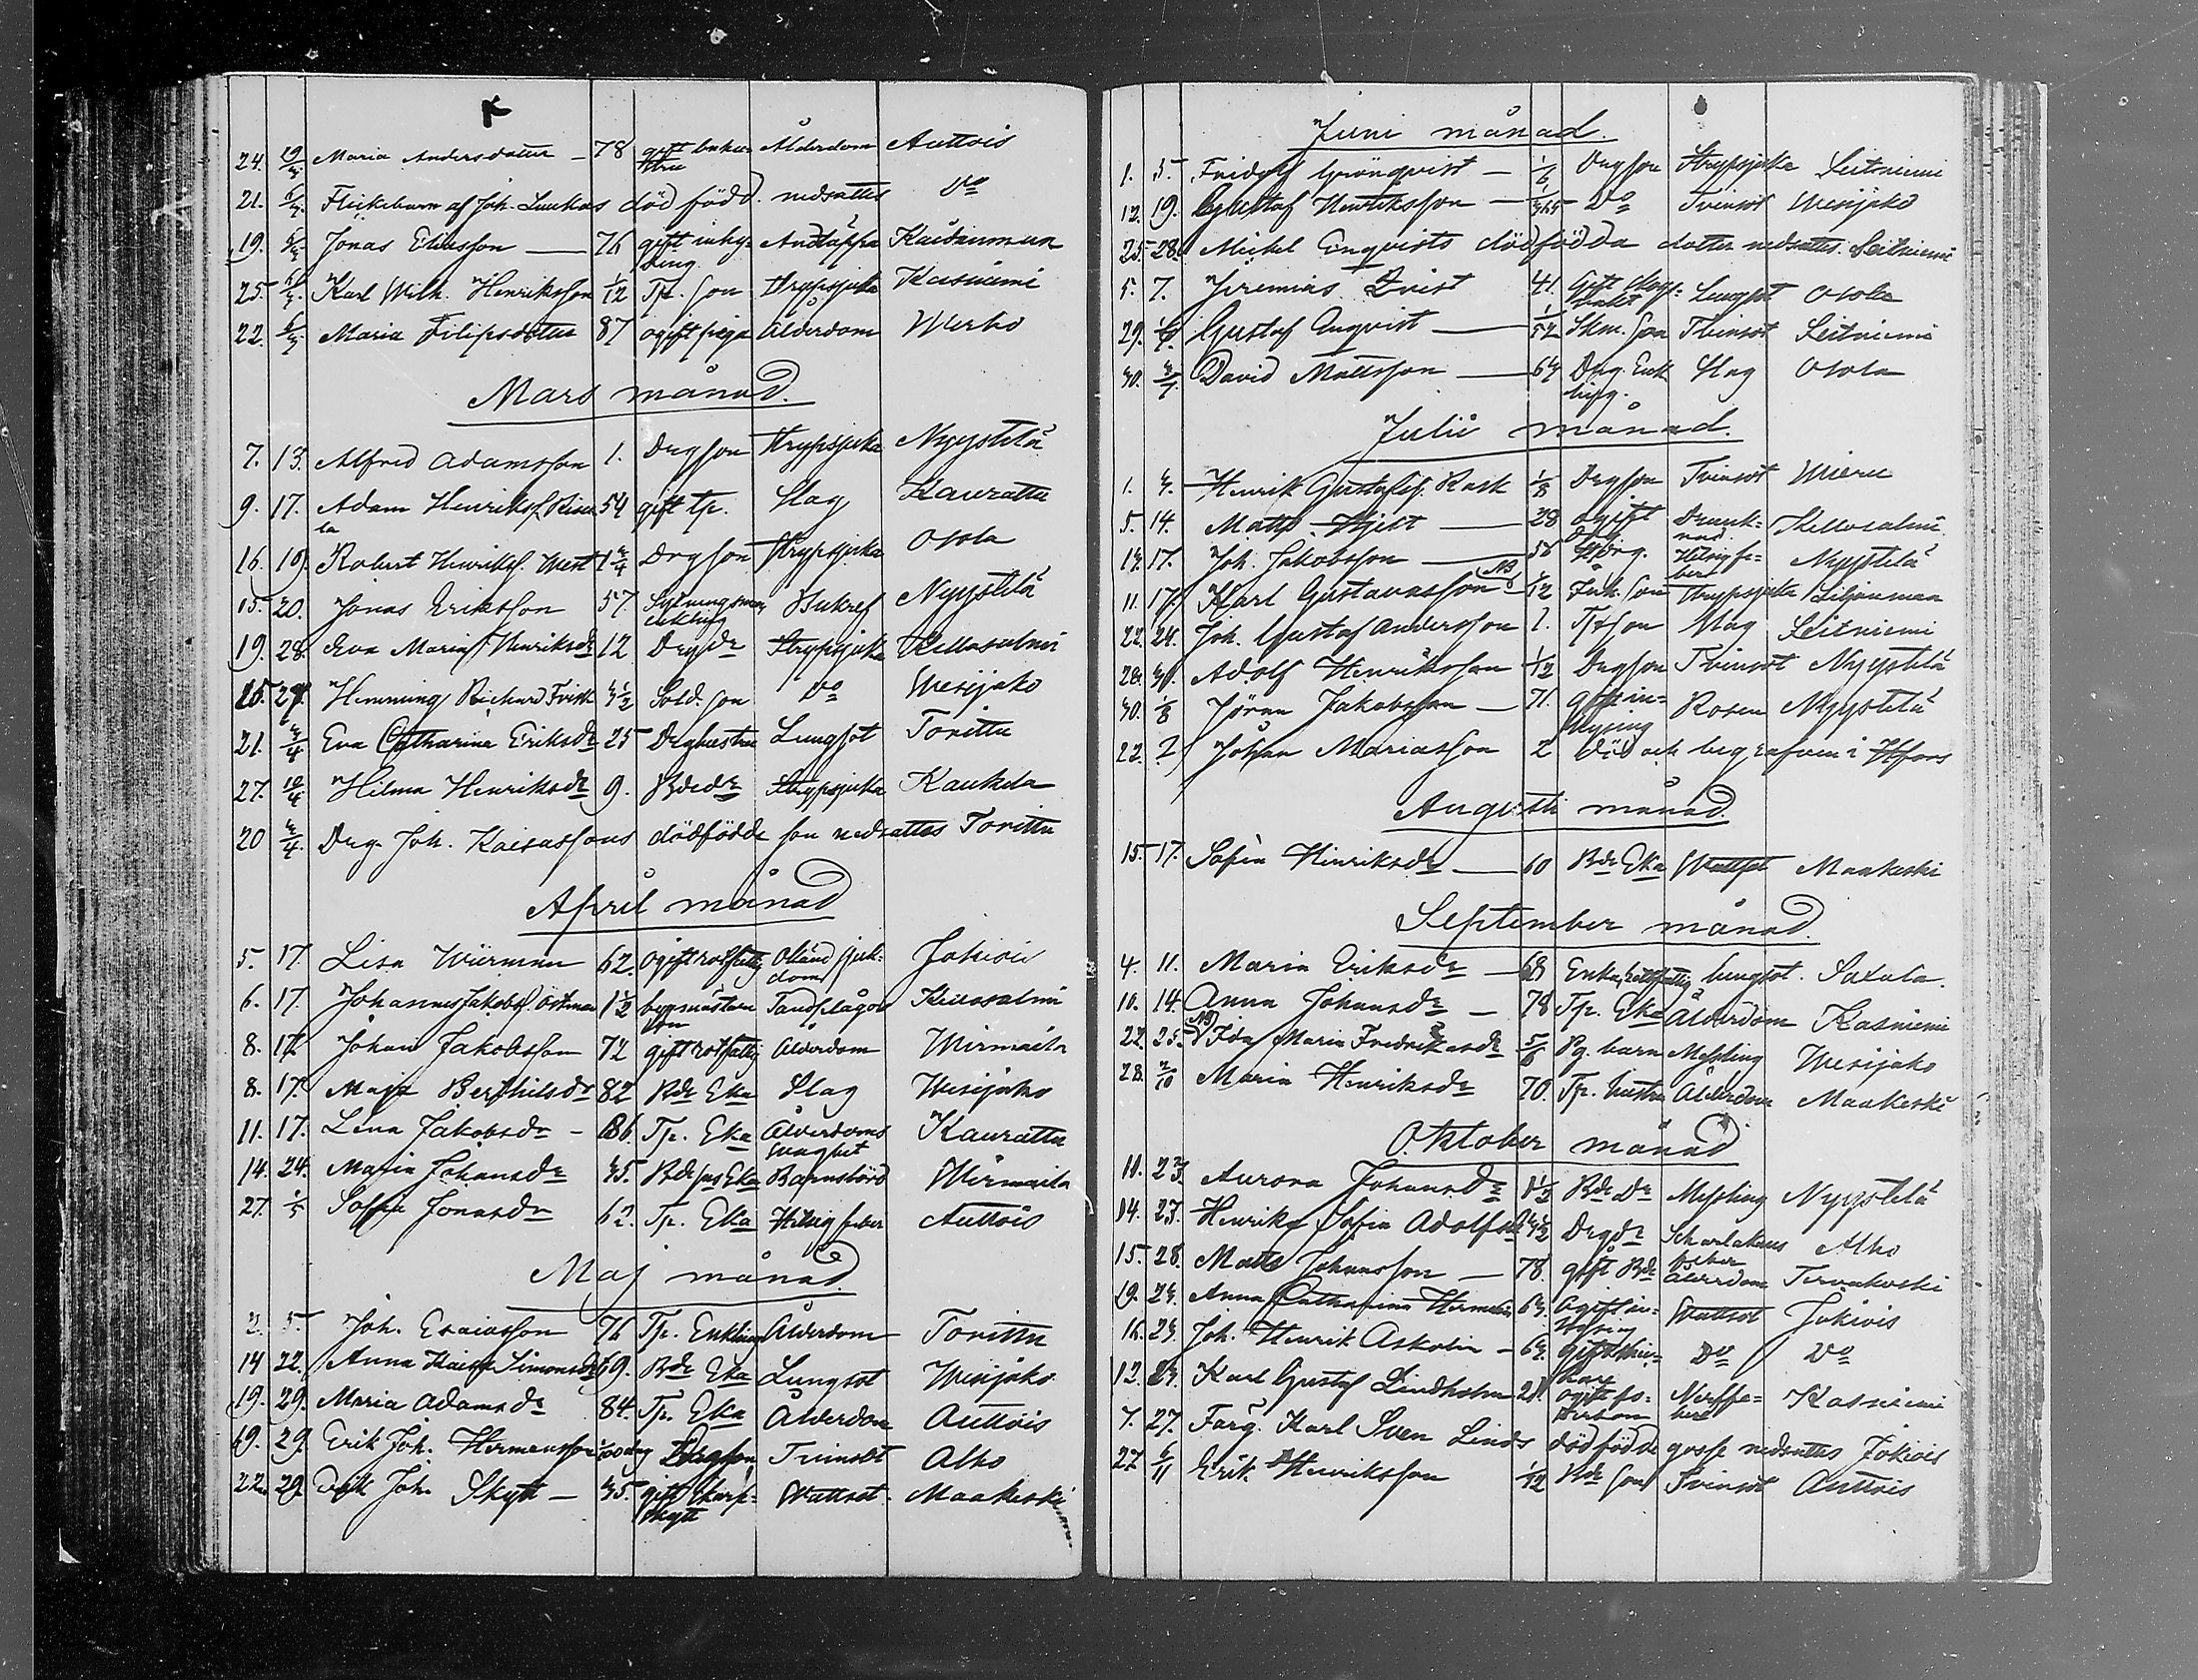 24. 19/3 Maria Andersdotter — 78 gift Ålderdom Auttois
21. 6/3. Flickebarn af Joh. Luukas död född. nedsattes Do
19. 6/3. Jonas Eliasson — 76 gift inhy= sing Andtäppa Kaidanmaa
25. 6/3. Karl Wilh. Henriksson 1/12 Tp. son Strypsjuka Kasniemi
22. 6/3. Maria Filipsdotter 87 ogift piga Ålderdom Werho
Mars månad.
7. 13. Alfred Adamsson 1. Drgson Strypsjuka Nyystilä
9. 17. Adam Henriks. 54 gift tp. Slag Kaurattu
16. 19. Robert Henriks. West Drgson Strypsjuka Osola
15. 20. Jonas Eriksson 57. Nyystilä
19. 28. Eva Maria Henriksdr 12 Drgdr Strypsjuka Kellosalmi
25. 29. Henning Richard Frisk 3 1/2 Sold. son Do Wesijako
21. 3/4 Eva Catharina Eriksdr 25 Drghustru Lungsot Torittu
27. 10/4 Hilma Henriksdr 9. Bdedr Strypsjuka Kaukela
20 3/4. Drg. Joh. Kaisassons dödfödde son nedsattes Torittu
April månad
5. 17. Lisa Wiirman 62. ogift rotfattig Okänd sjuk= dom Jokiois
6. 17. Johannes Jakobs. Östman 1 1/2 Tandslågor Kellosalmi
8. 17. Johan Jakobsson 72 gift rotfattig Ålderdom Mirmaila
8. 17. Maja Berthilsdr 82 Bde Eka Slag Wesijako
11. 17. Lena Jakobsdr — 86. Tp. Eka Ålderdoms svaghet Kaurattu
14. 24. Maria Johansdr 35. Eka Barnsbörd Mirmaila
27. 1/5 Sofia Jonasdr 62. Tp. Eka Hitsig feber Auttois
Maj månad.
2. 5. Joh. Esaiasson 76 Tp. Enkling Ålderdom Torittu
14 22. Anna Kaisa Simonsdr 69. Bde Eka Lungsot Wesijako
19. 29. Maria Adamsdr 84. Tp. Eka Ålderdom Auttois
19. 29. Erik Joh. Hermansson Drgson Tvinsot Alho
22. 29. Erik Joh. Skytt — 35. gift skarp= skytt Wattsot Maakeski
Juni månad.
1. 5. Fridolf Grönqvist — 1/6 Drgson Strypsjuka Leitniemi
12. 19. Gustaf Henriksson — Do Tvinsot Wesijako
25. 28. Mickel Enqvists dödfödda dotter nedsattes. Leitniemi
5. 7. Jeremias Qvist 41. Gift Lungsot Osola
29. Gustaf Anqvist — 1/52 Skm. son Tvinsot Leitniemi
30. 3/7. David Mattsson — 63 Drg. Enk ling. Slag Osola
Julii månad.
1. 3. Henrik Gustafss. Rask 1/8 Drgson Tvinsot Mieru
5. 14. Matts — 28 ogift Drg Drunk= nad. Kellosalmi
13. 17. Joh. Jakobsson — 56 Hitsig fe= ber Nyystilä
11. 17. Karl Gustavasson 1/12 Enk. son Strypsjuka Liljanmaa
22. 24. Joh. Gustaf Andersson 1. Tp son Slag Leitniemi
28. 30. Adolf Henriksson 1/12 Drgson Tvinsot Nyystilä
30. 1/8 Jöran Jakobsson — 71. gift in= hysing Rosen Nyystilä
22. 2/ Johan Mariasson 2 Död och begrafven i Hfors
Augusti månad.
15. 17. Sofia Hinriksdr — 60 Bde Eka Wattsot Maakeski
September månad.
4. 11. Maria Eriksdr — 68 Enka, rotfattig lungsot. Saxala.
10. 14. Anna Johansdr — 78 Tp. Eka Ålderdom Kasniemi
22. 25. NB Ida Maria Fredrikasdr 5/6 Pg. barn Messling Wesijako
28. 2/10 Maria Henriksdr 70. Tp. hustru Ålderdom Maakeski
Oktober månad
10. 23. Aurora Johansdr 1 1/2 Bde Dr Messling Nyystilä
14. 23. Henrika Sofia Adolfsdr Drgdr Scharlakans feber Alho
15. 28. Matts Johansson — 78. gift Bde Ålderdom Tervakoski
19. 23. Anna Catharina 63. Ogift in= hysing Wattsot Jokiois
16. 23. Joh. Henrik Askolin — 63. Do Do
12. 23. Karl Gustaf Lindholm 21. Nerffe= ber Kasniemi
7. 27. Färg. Karl Sven Linds dödfödde gosse nedsattes Jokiois
27. 6/11 Erik Henriksson 1/12 Bde son Tvinsot Auttois